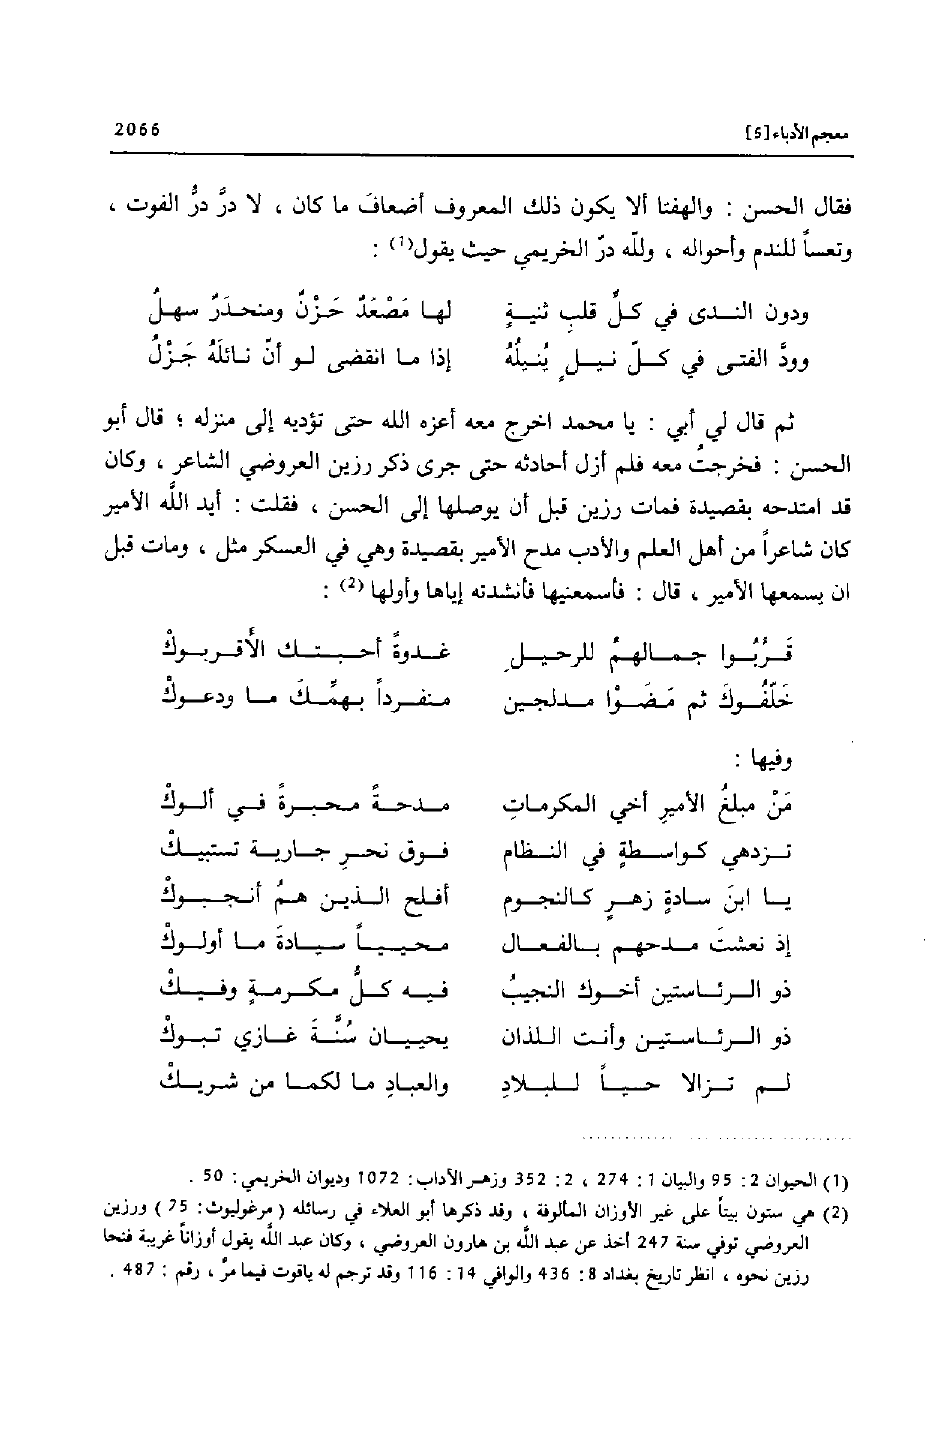 معجم الأدباء [5] 2066
فقال الحسن : والهفتا ألا يكون ذلك المعروف أضعافَ ما كان ، لا درَّ درُّ الفوت ،
وتعساً للندم وأحواله ، ولله درّ الخريمي حيث يقول(1) :
ودون النــدى في كــلِّ قلبٍ ثنيــةٍ لها مَصْعَدٌ حَــزْنٌ ومنحدَرٌ سهــلُ
وودَّ الفتــى في كــلِّ نيــلٍ يُنيــلُهُ إذا مــا انقضى لــو أنّ نــائلَهُ جَــزْلُ
ثم قال لي أبي : يا محمد اخرج معه أعزه الله حتى تؤديه إلى منزله ؛ قال أبو
الحسن : فخرجتُ معه فلم أزل أحادثه حتى جرى ذكر رزين العروضي الشاعر ، وكان
قد امتدحه بقصيدة فمات رزين قبل أن يوصلها إلى الحسن ، فقلت : أيد الله الأمير
كان شاعراً من أهل العلم والأدب مدح الأمير بقصيدة وهي في العسكر مثل ، ومات قبل
ان يسمعها الأمير ، قال : فأسمعنيها فأنشدته إياها وأولها(2) :
قَــرَّبُــوا جــمــالهمُ للرحيــلِ غــدوةً أحــبــتــك الأقــربــوكْ
خَلَّفُــوكَ ثم مَــضَــوْا مــدلجين منفــرداً بــهمِّــك مــا ودعــوكْ
وفيها :
مَنْ مبلغُ الأميرِ أخي المكرمــاتِ مــدحــةً محبــرةً فــي ألــوكْ
تــزدهي كــواســطةٍ في النــظام فــوق نحــرِ جــاريــة تستبيــكْ
يــا ابنَ ســادةٍ زهــرٍ كــالنجــوم أفلح الــذيــن هــمُ أنجبــوكْ
إذ نعشتَ مــدحهــم بــالفعــال محييــاً سيــادةَ مــا أولــوكْ
ذو الــرئــاستين أخــوك النجيبُ فيــه كــلُّ مكــرمــةٍ وفيــكْ
ذو الــرئــاستيــن وأنــت اللذان يحييــان سُنَّــةَ غــازي تبــوكْ
لــم تــزالا حيــاً للبــلادِ والعبــادِ ما لكمــا من شريــكْ
(1) الحيوان 2 : 95 والبيان 1 : 274 ، 2 : 352 وزهر الآداب : 1072 وديوان الخريمي : 50 .
(2) هي ستون بيتاً على غير الأوزان المألوفة ، وقد ذكرها أبو العلاء في رسائله ( مرغوليوث : 75 ) ورزين
العروضي توفي سنة 247 أخذ عن عبد الله بن هارون العروضي ، وكان عبد الله يقول أوزاناً غريبة فنحا
رزين نحوه ، انظر تاريخ بغداد 8 : 436 والوافي 14 : 116 وقد ترجم له ياقوت فيما مرّ ، رقم : 487 .